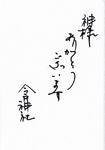 神様
ありがとう
ございます
今宮神社